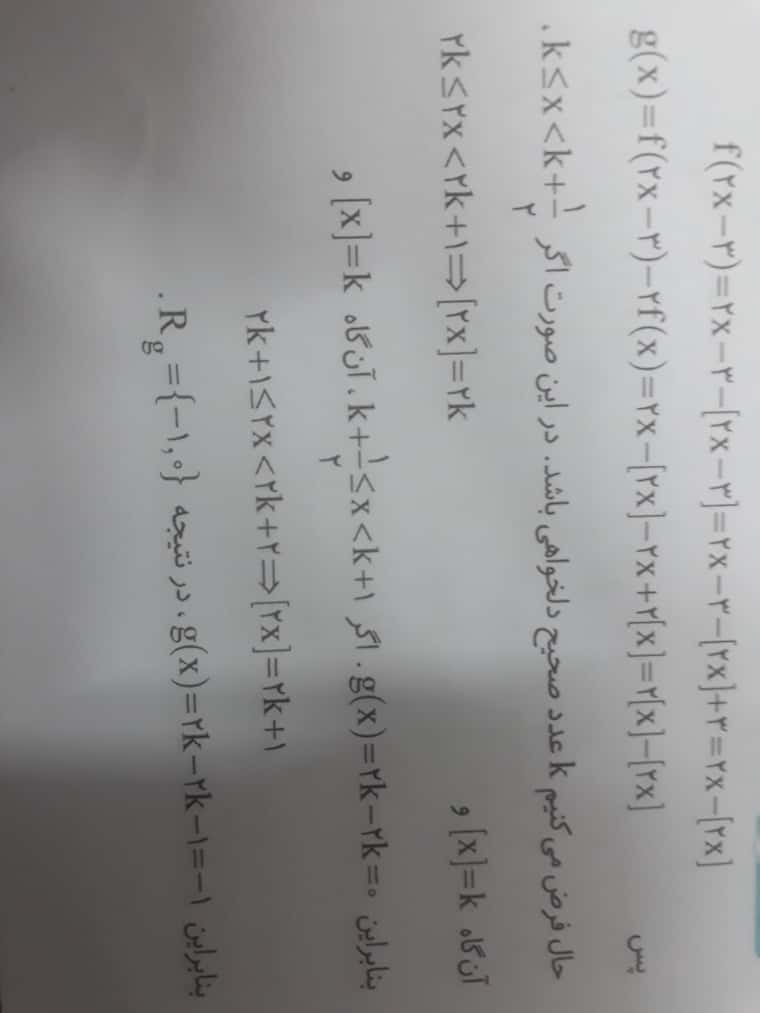 f(۲x−۳)=۲x−۳−[۲x−۳]=۲x−۳−[۲x]+۳=۲x−[۲x]
پس g(x)=f(۲x−۳)−۲f(x)=۲x−[۲x]−۲x+۲[x]=۲[x]−[۲x]
حال فرض می‌کنیم k عدد صحیح دلخواهی باشد. در این صورت اگر k≤x<k+۱/۲،
آن‌گاه [x]=k و ۲k≤۲x<۲k+۱⇒[۲x]=۲k
بنابراین g(x)=۲k−۲k=۰. اگر k+۱/۲≤x<k+۱، آن‌گاه [x]=k و
۲k+۱≤۲x<۲k+۲⇒[۲x]=۲k+۱
بنابراین g(x)=۲k−۲k−۱=−۱، در نتیجه R_g={−۱,۰}.